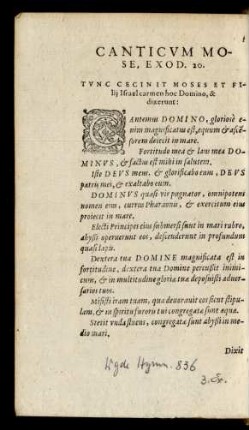 CANTICVM MO-
SE, EXOD. 20.
TVNC CECINIT MOSES ET FI-
lij Israel carmen hoc Domino, &
dixerunt:
CAntemus DOMINO, gloriosè e-
nim magnificatus est, equum & ascẽ-
sorem deiecit in mare.
Fortitudo mea & laus mea DO-
MINVS, & factus est mihi in salutem.
Iste DEVS meus, & glorificabo eum, DEVS
patris mei, & exaltabo eum.
DOMINVS quasi vir pugnator, omnipotens
nomen eius, currus Pharaonis, & exercitum eius
proiecit in mare.
Electi Principes eius submersi sunt in mari rubro,
abyssi operuerunt eos, descenderunt in profundum
quasi lapis.
Dextera tua DOMINE magnificata est in
fortitudine, dextera tua Domine percussit inimi-
cum, & in multitudine gloriæ tuæ deposuisti aduer-
sarios tuos.
Misisti iram tuam, quæ deuorauit eos sicut stipu-
lam, & in spiritu furoris tui congregatæ sunt aquæ.
Stetit vnda fluens, congregatæ sunt abyssi in me-
dio mari.
Dixit
Hymn. 836